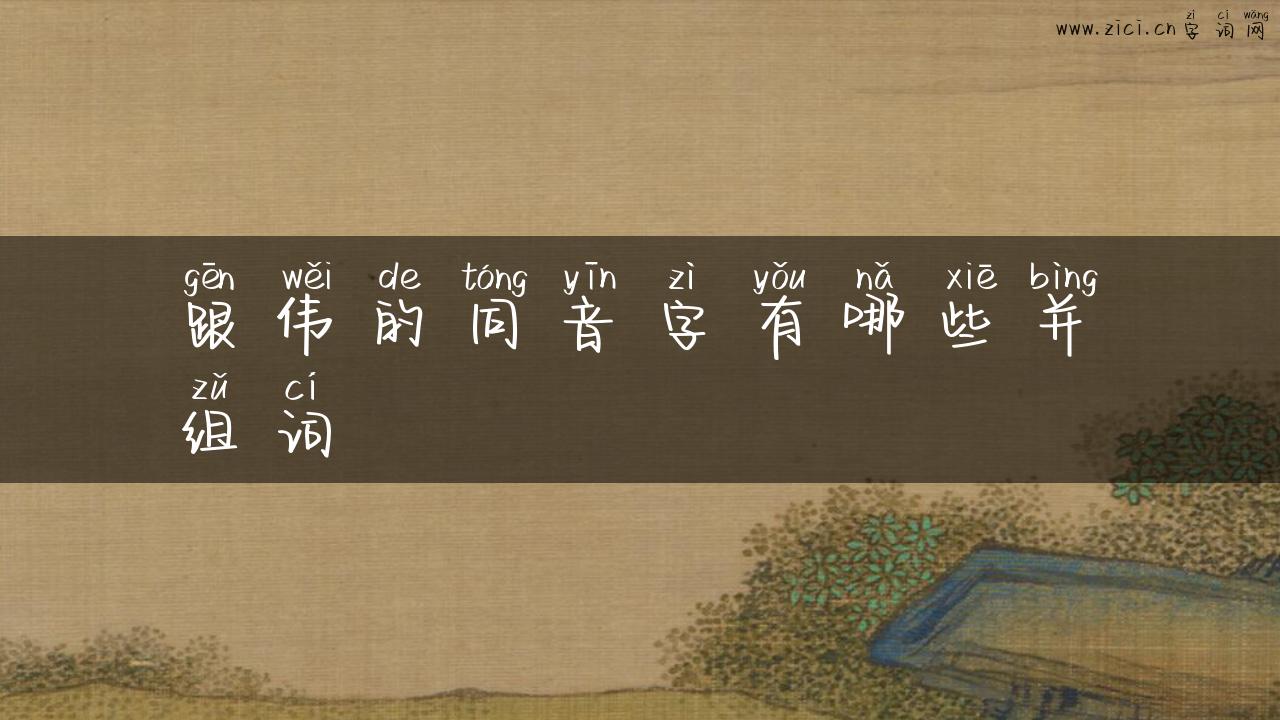 zì cí wǎng
www.zici.cn 字 词 网
gēn wěi de tóng yīn zì yǒu nǎ xiē bìng
跟 伟 的 同 音 字 有 哪 些 并
zǔ cí
组 词